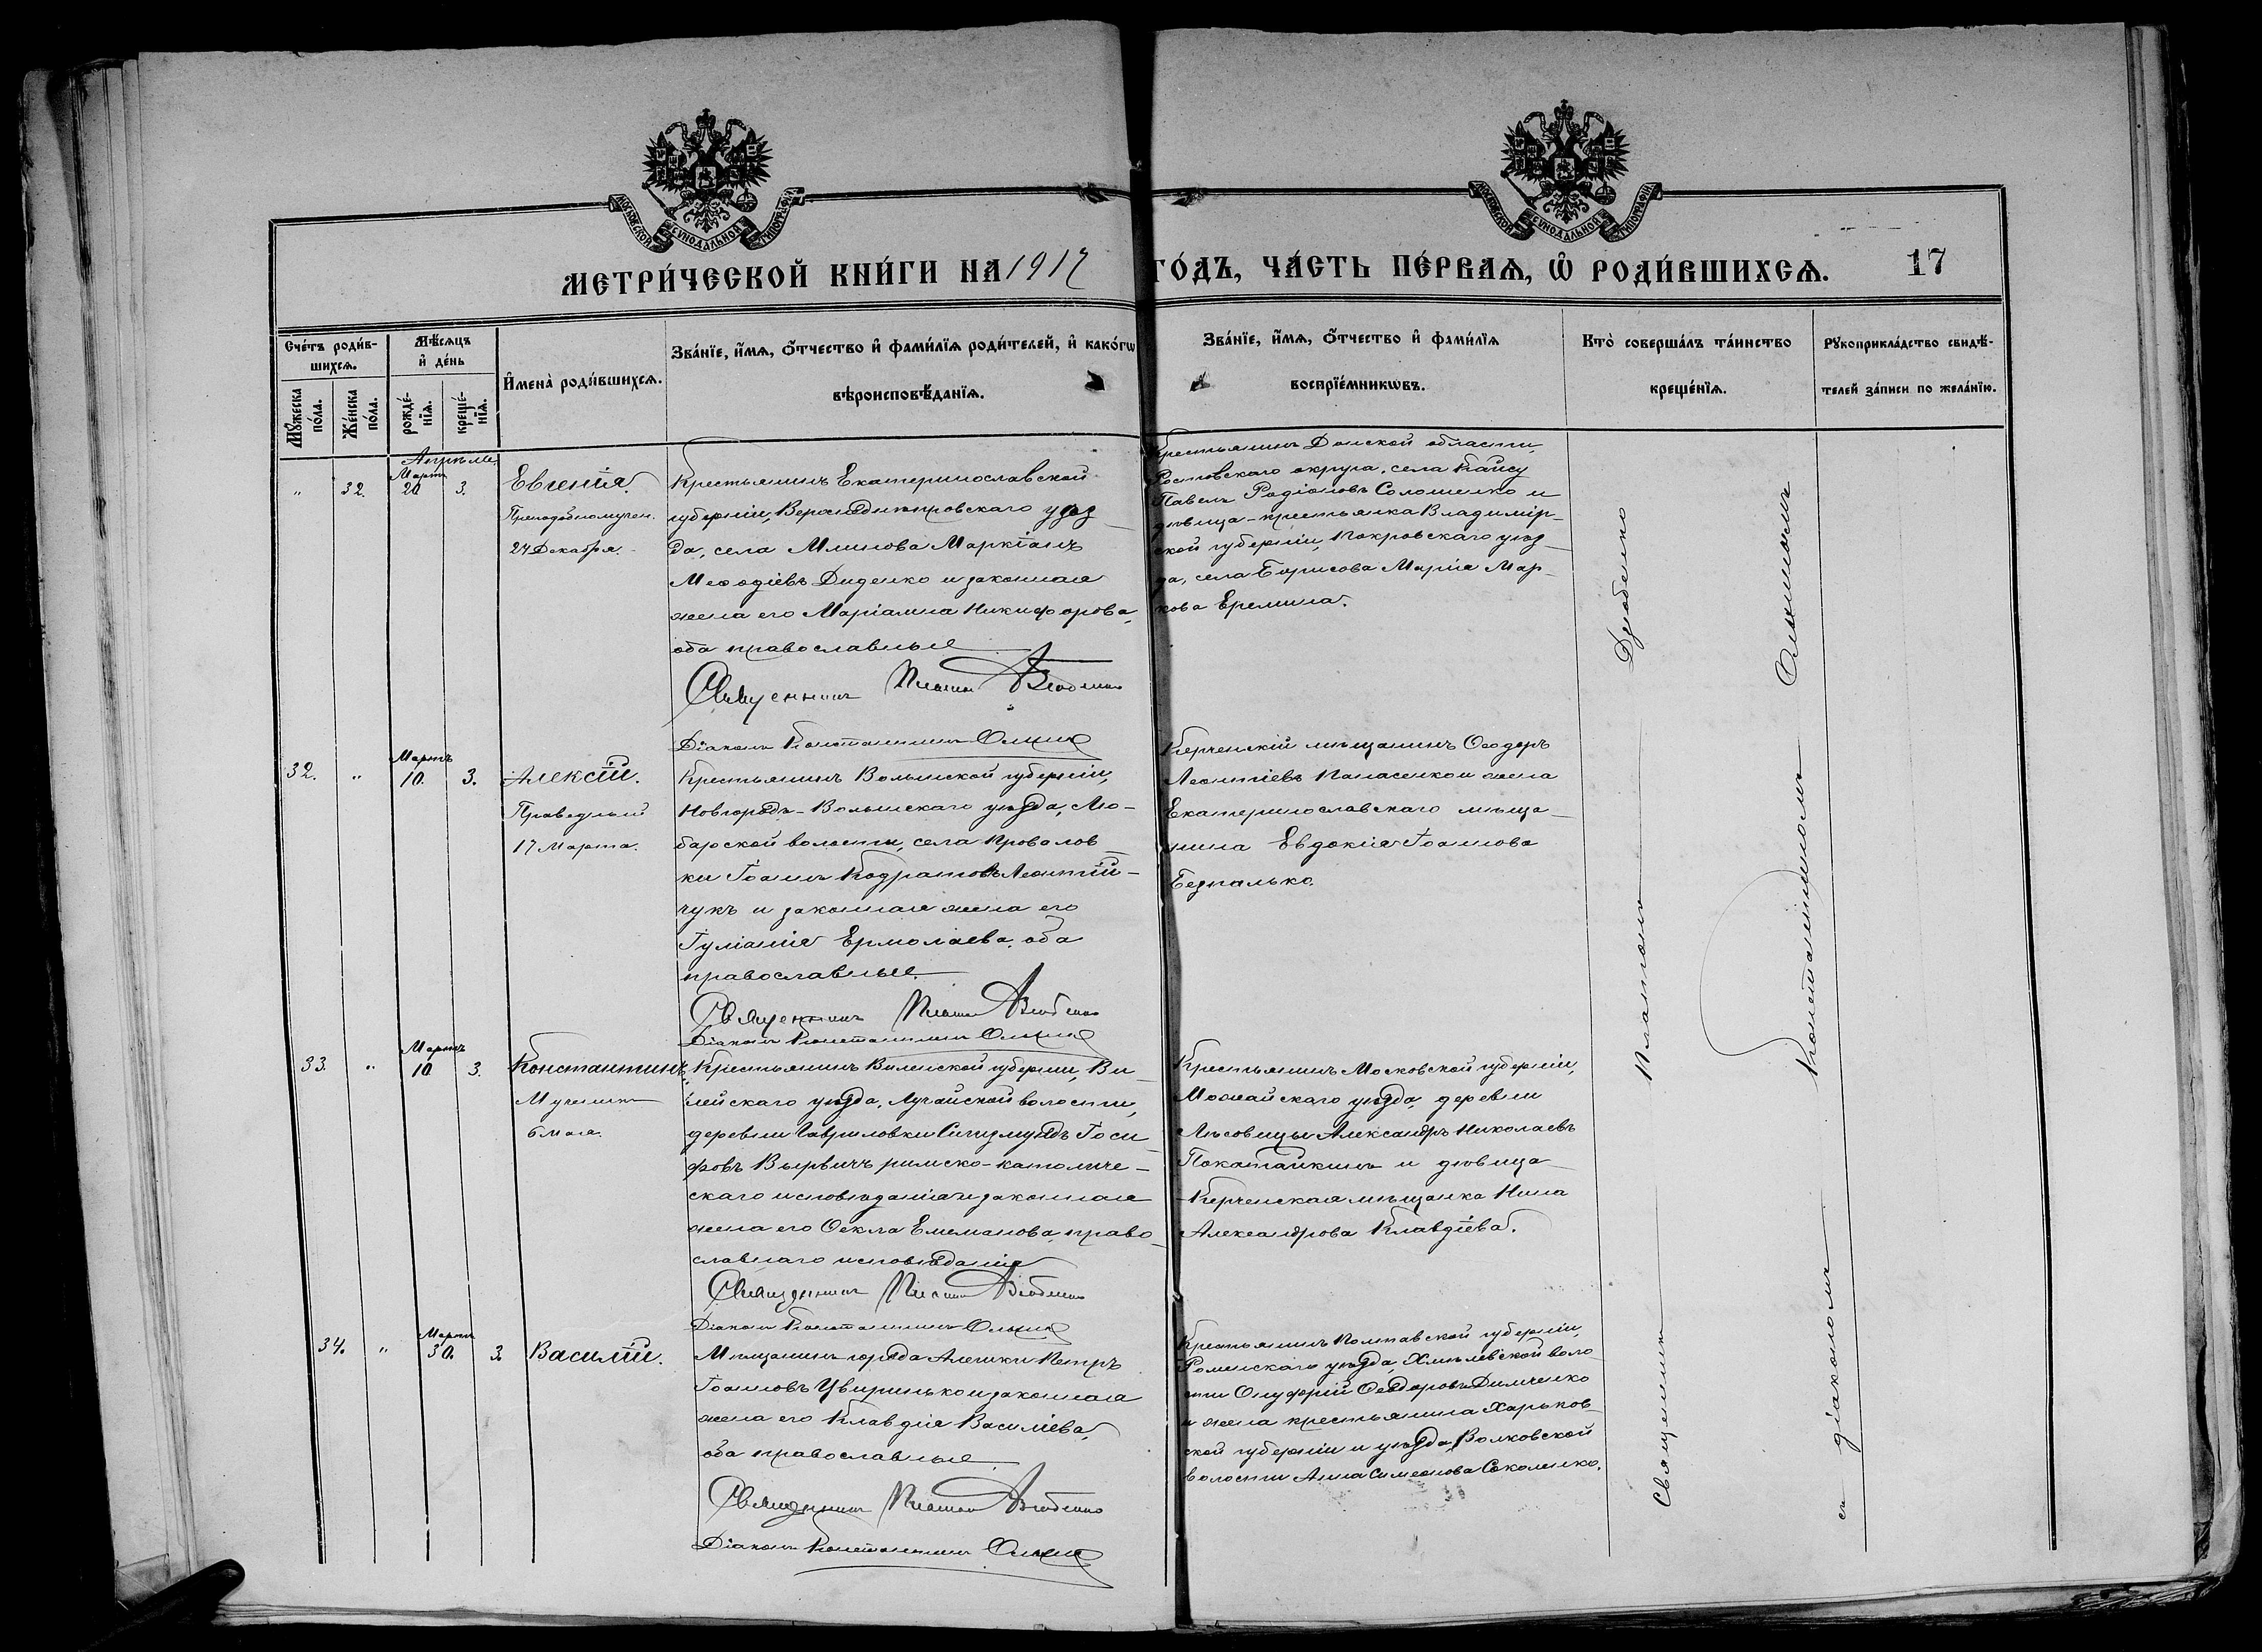 МОСКОВСКОЙ СѴНОДАЛЬНОЙ ТИПОГРАФІИ
МОСКОВСКОЙ СѴНОДАЛЬНОЙ ТИПОГРАФІИ
МЕТРИ́ЧЕСКОЙ КНИ́ГИ НА 1917 ГО́ДЪ, ЧА́СТЬ ПЕ́РВАѦ, Ѽ РОДИ́ВШИХСѦ. 17
Сче́тъ роди́в-
шихсѧ.
Мꙋ́жеска
по́ла.
Же́нска
по́ла.
Мѣ́сѧцъ
и҆ де́нь
рожде́-
нїѧ.
креще́-
нїѧ.
И҆мена̀ роди́вшихсѧ.
Зва́нїе, и҆́мѧ, о҆́тчество и҆ фами́лїѧ роди́телей, и҆ како́гѡ
вѣроисповѣ́данїѧ.
Зва́нїе, и҆́мѧ, о҆́тчество и҆ фами́лїѧ
воспрїе́мникѡвъ.
Кто̀ соверша́лъ та́инство
креще́нїѧ.
Рꙋкоприкла́дство свидѣ́-
телей за́писи по жела́нїю.
Апрѣль
Мартъ
" 32. 20 3.
Евгенія.
Преподобномучен.
24 Декабря.
Крестьянинъ Екатеринославской
губерніи, Верхнеднѣпровскаго уѣз-
да, села Млинова Маркіанъ
Меѳодіевъ Диденко и законная
жена его Маріамна Никифорова,
оба православные
Священникъ Платонъ
Діаконъ Константинъ
Крестьянинъ Донской области,
Ростовскаго округа, села
Павелъ Родіоновъ Соломенко и
дѣвица-крестьянка Владимір-
ской губерніи, Покровскаго уѣз-
да, села Борисова Марія Мар-
кова Еремина.
Мартъ
32. " 10. 3.
Алексій.
Праведный
17 Марта.
Крестьянинъ Волынской губерніи,
Новгородъ-Волынскаго уѣзда, Лю-
барской волости, села Провалов-
ки Іоаннъ Кодратовъ Леонтій-
чукъ и законная жена его
Іуліанія Ермолаева, оба
православные.
Священникъ Платонъ
Діаконъ Константинъ
Керченскій мѣщанинъ Ѳеодоръ
Леонтіевъ Панасенко и жена
Екатеринославскаго мѣща-
нина Евдокія Іоаннова
Безпалько.
Мартъ
33. " 10 3.
Константинъ,
Мученикъ
6 мая.
Крестьянинъ Виленской губерніи, Ви-
лейскаго уѣзда, Лучайской волости,
деревни Гавриловки Сигизмундъ Іоси-
фовъ Вырвичъ римско-католиче-
скаго исповѣданія и законная
жена его Ѳекла Емеліанова, право-
славнаго исповѣданія
Священникъ Платонъ
Діаконъ Константинъ
Крестьянинъ Московской губерніи,
Можайскаго уѣзда, деревни
Лысовицы Александръ Николаевъ
Покатайкинъ и дѣвица
-Керченская мѣщанка Нина
Александрова Клавдіева.
Мартъ
34. " 30. 3.
Василій.
Мѣщанинъ города Алешки Петръ
Іоанновъ Цвиринько и законная
жена его Клавдія Василіева,
оба православные.
Священникъ Платонъ
Діаконъ Константинъ
Крестьянинъ Полтавской губерніи,
Роменскаго уѣзда, Хмѣлевской воло-
сти Онуфрій Ѳеодоровъ Димченко
и жена крестьянина Харьков-
ской губерніи и уѣзда, Волковской
волости Анна Симеонова Соколенко.
Священникъ Платонъ
съ діакономъ Константиномъ